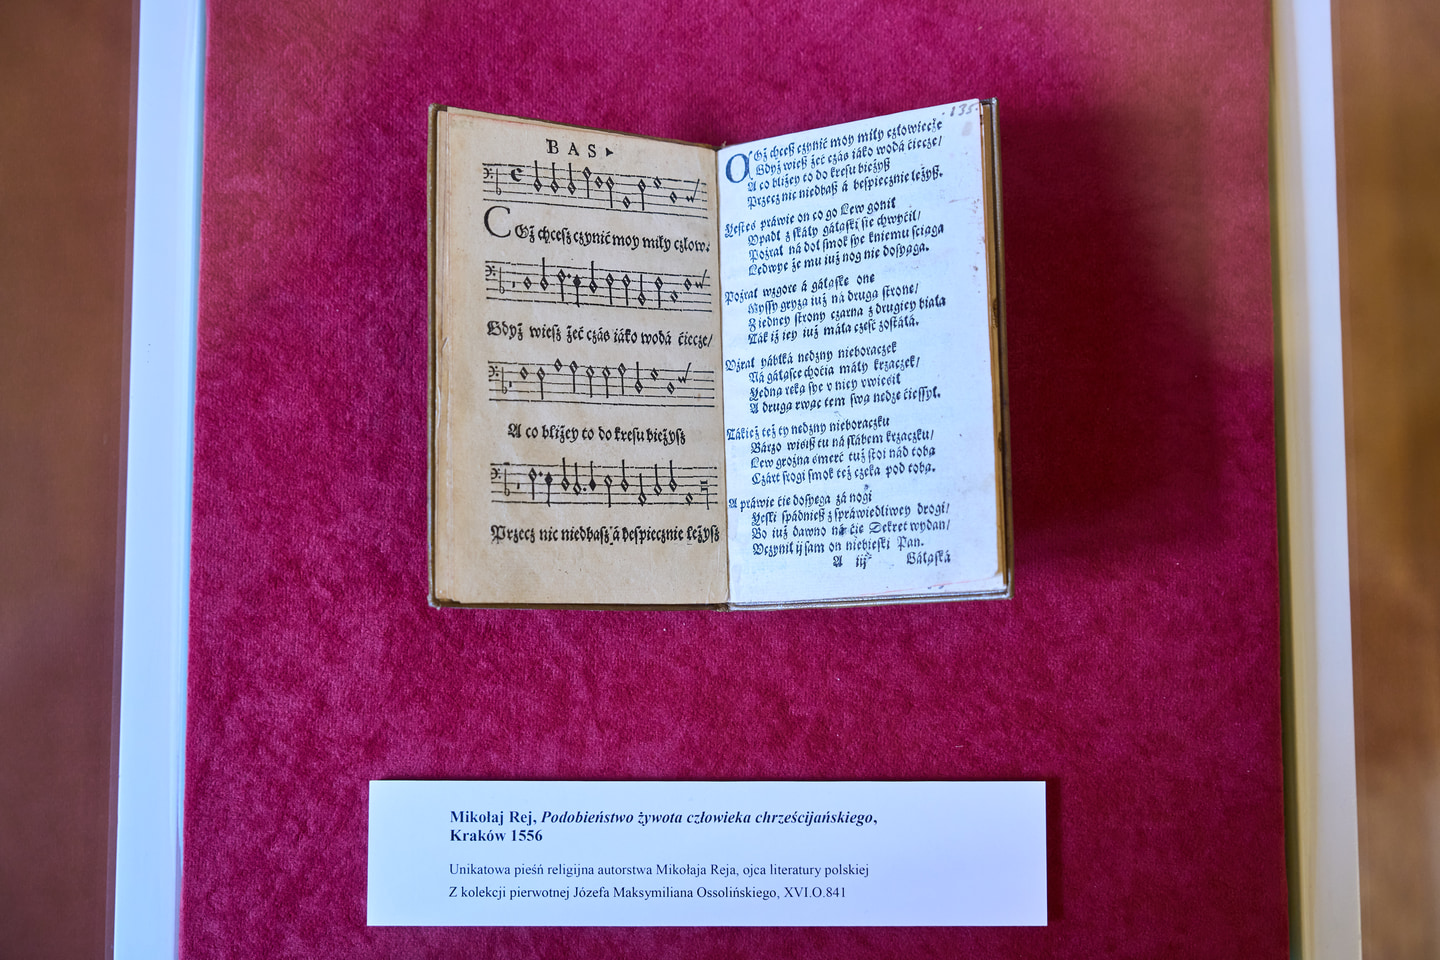 BAS
Cóż chcesz czynić moy miły człow.
Gdyż wiesz żeć czás iáko wodá ciecze/
A co bliżey to do kresu bieżysz
Przecz nic niedbasz á bespiecznie leżysz
135.
Oż chcesz czynić moy miły człowiecze
Gdyż wiesz żeć czás iáko wodá ciecze/
A co bliżey to do kresu bieżysz
Przecz nic niedbasz á bespiecznie leżysz.
Jesteś práwie on co go Lew gonił
Vpadł z skáły gáłąski sie chwyćił/
Poźrał ná doł smok sye kniemu sciąga
Ledwye że mu iuż nog nie dosyąga.
Poźrał wzgorę á gáłąskę one
Myssy gryzą iuż ná drugą stronę/
Z iedney strony czarna z drugiey biała
Ták iż iey iuż máła część zostáłá.
Vźrał yábłká nędzny nieboraczek
Ná gáłąsce choćia máły krzaczek/
Jedną ręką sye v niey vwiesił
A drugą rwąc tem swą nędzę ćieszył.
Tákież też ty nędzny nieboraczku
Bárzo wisisz tu ná słábem krzaczku/
Lew groźna śmierć tuż stoi nád tobą
Czárt srogi smok też czeka pod tobą.
A práwie ćie dosyęga zá nogi
Jesli spádniesz z spráwiedliwey drogi/
Bo iuż dawno ná ćie Dekret wydan/
Vczynił ij sam on niebieski Pan.
A iij Gáłąská
Mikołaj Rej, Podobieństwo żywota człowieka chrześcijańskiego,
Kraków 1556
Unikatowa pieśń religijna autorstwa Mikołaja Reja, ojca literatury polskiej
Z kolekcji pierwotnej Józefa Maksymiliana Ossolińskiego, XVI.O.841